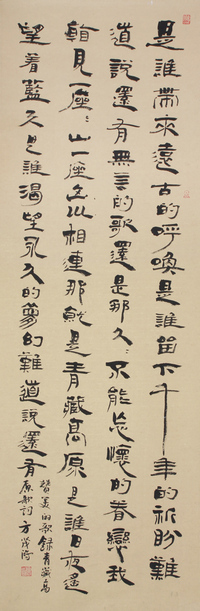 是誰帶來遠古的呼喚是誰留下千年的祈盼難
道說還有無言的歌還是那久〻不能忘懷的眷戀我
看見一座〻山一座山川相連那就是青藏高原是誰日夜遥
望着藍天是誰渴望永久的夢幻難道說還有
贊美的歌錄青藏高
原歌詞 方茂